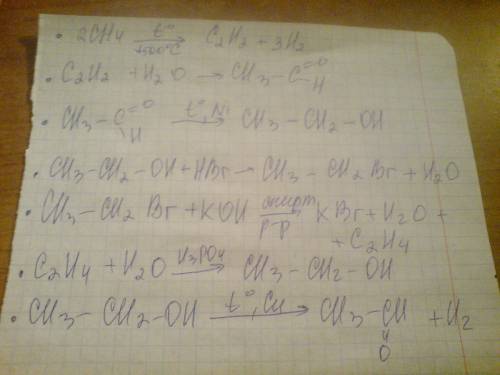 • 2CH4 t° → +1500°C C2H2 + 3H2
• C2H2 + H2O → CH3 - C =O H
• CH3 - C =O H t°, Ni → CH3 - CH2 - OH
• CH3 - CH2 - OH + HBr → CH3 - CH2Br + H2O
• CH3 - CH2 Br + KOH спирт р-р KBr + H2O +
+ C2H4
• C2H4 + H2O H3PO4 → CH3 - CH2 - OH
• CH3 - CH2 - OH t°, Cu → CH3 - CH + H2
O